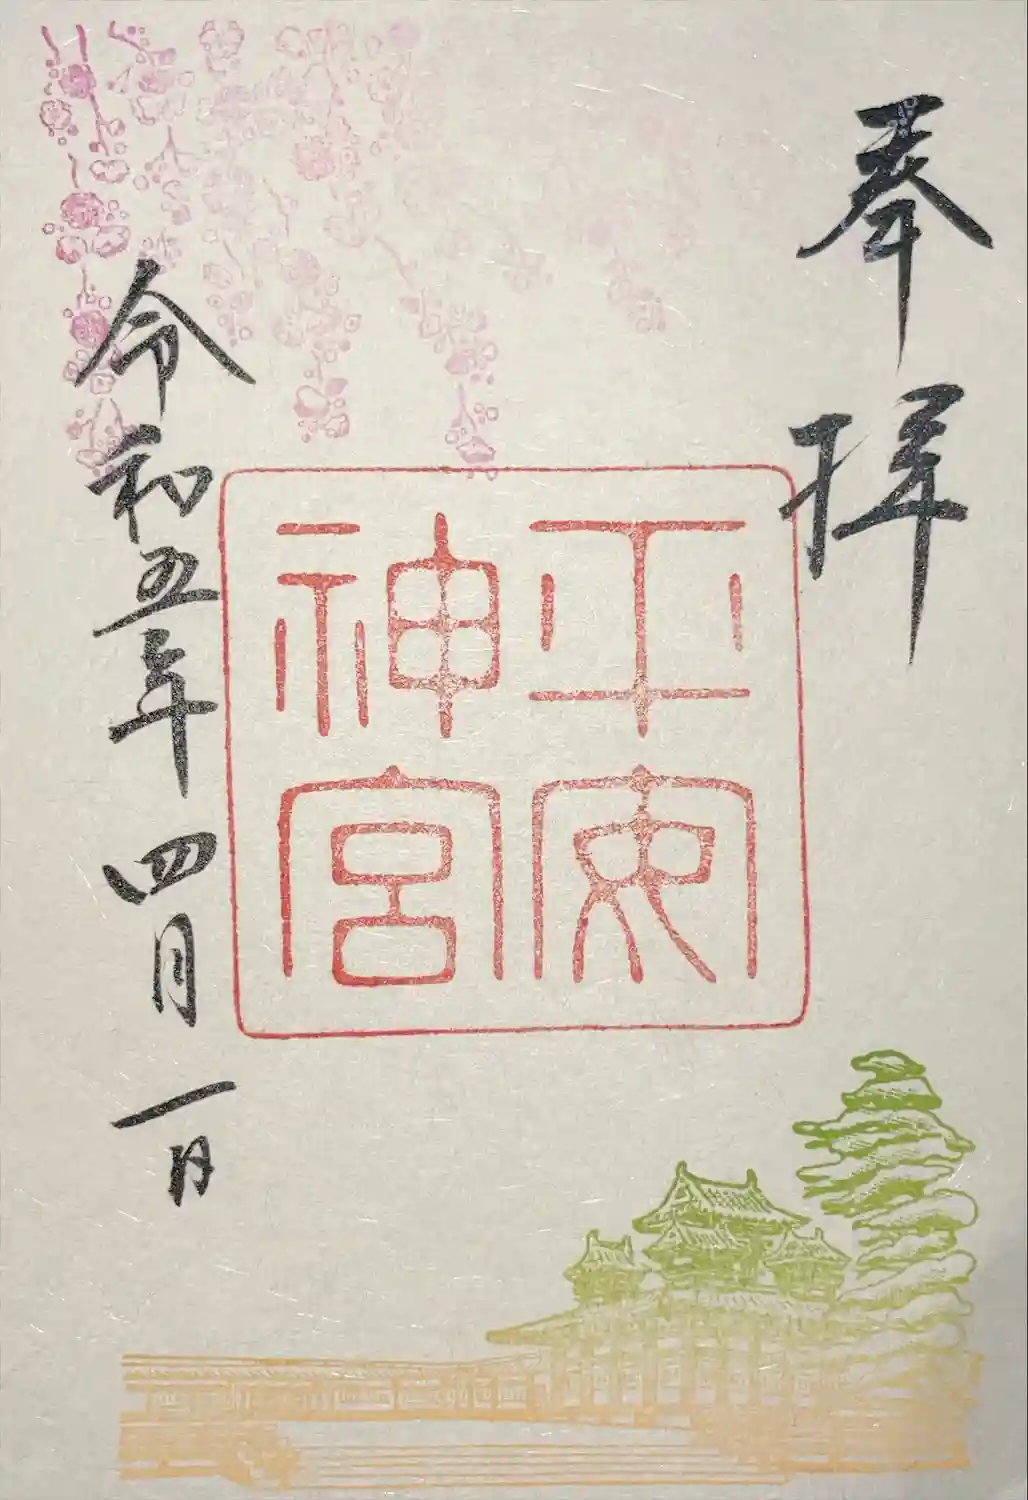 奉拝
平安
神宮
令和五年四月一日